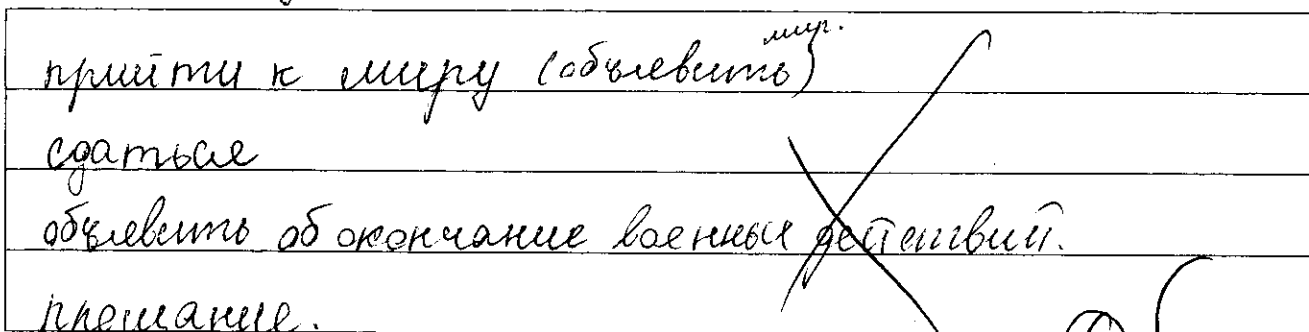 прийти к миру (объявить) мир.
сдаться
объявить об окончание военных действий.
прощание.